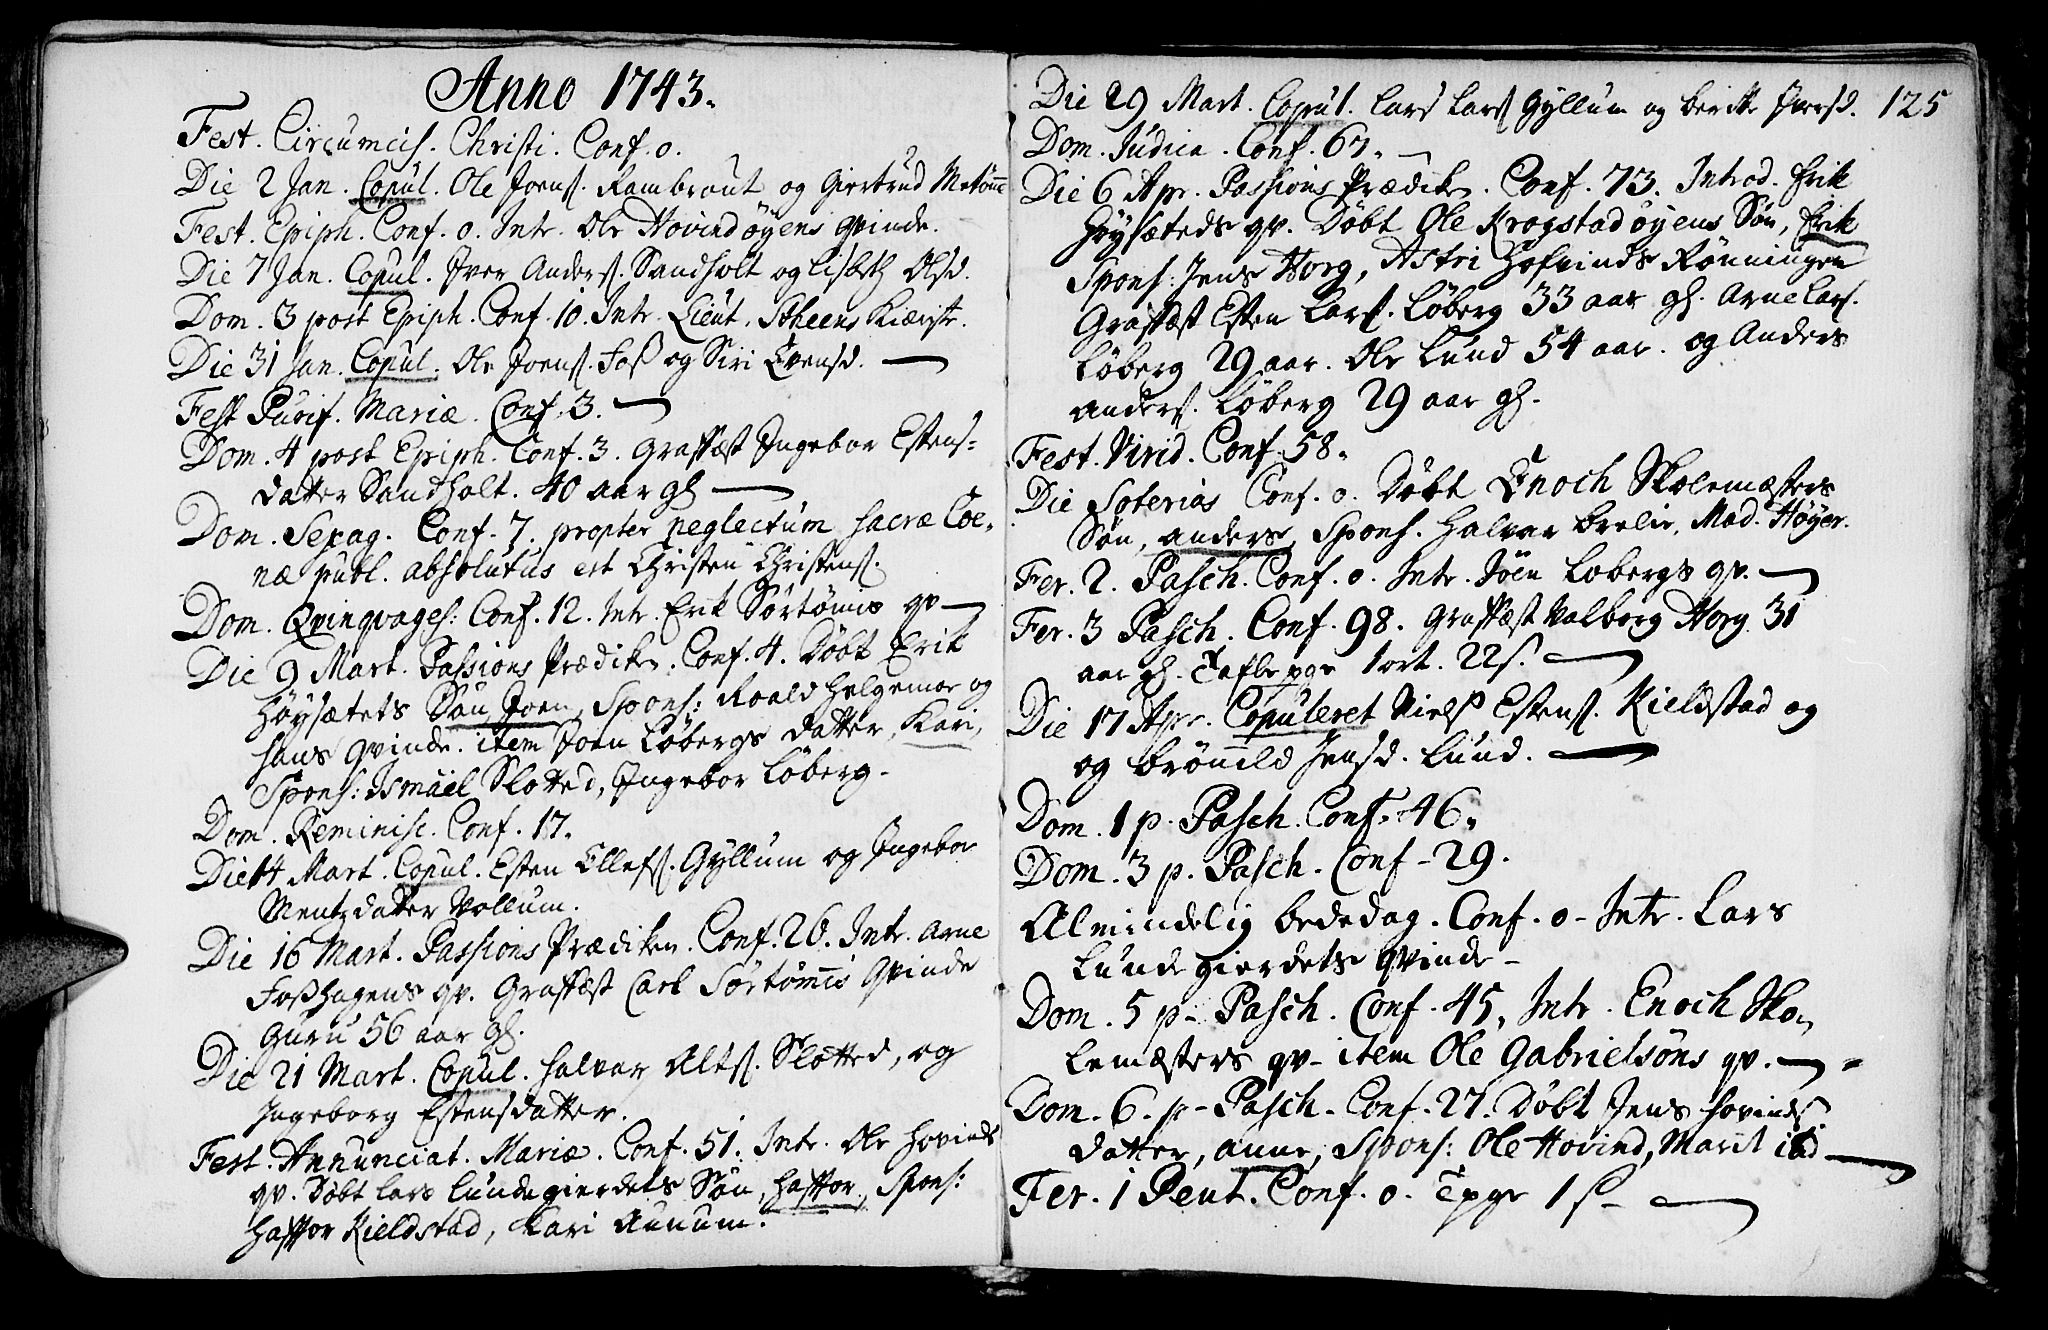 Anno 1743.
Fest. Circumcis. Christi. Conf. 0.
Die 2 Jan. Copul. Ole Joens. Rambraut og Giertrud
Fest. Epiph. Conf. 0. Intr. Ole Hovindøyens Qvinde.
Die 7 Jan. Copul. Iver Anders. Sandholt og Lisbeth Olsd.
Dom. 3 post Epiph. Conf. 10. Intr. Lieut. Stheens Kiæriste.
Die 31 Jan. Copul. Ole Joens. Foss og Siri Evensd.
Fest Purif. Mariæ. Conf. 3.
Dom. 4 post Epiph. Conf. 3. Graffæst Ingebor Estens-
datter Sandholt. 40 aar gl
Dom. Sexag. Conf. 7. propter neglectum sacræ Coe-
næ publ. absolutus est Christen Christens.
Dom. Qvinqvages: Conf. 12. Intr. Erik Sørtømis qv
Die 9 Mart. Passions Prædiken. Conf. 4. Døbt Erik
Høysætets Søn Joen, Spons: Roald Helgemoe og
hans Qvinde. item Joen Løbergs datter, Kari,
Spons: Ismael Slotted, Ingebor Løberg.
Dom. Reminisc. Conf. 17.
Die 14 Mart. Copul. Esten Ellefs. Gyllum og Ingebor
Mentzdatter Vollum.
Die 16 Mart. Passions Prædiken. Conf. 26. Intr. Arne
Fosshagens qv. Graffæst Carl Sørtømis Qvinde
Guru 56 aar gl.
Die 21 Mart. Copul. Halvar Alts. Slotted, og
Ingeborg Estensdatter.
Fest. Annunciat. Mariæ. Conf. 51. Intr. Ole Hovinds
qv. Døbt Lars Lundegierdets Søn, Haftor, Spons:
Haftor Kieldstad, Kari Aunum.
Die 29 Mart. Copul. Lars Lars. Gyllum og Beritte Iversd. 125
Dom. Judica. Conf. 67.
Die 6 Apr. Passions Prædiken. Conf. 73. Introd. Erik
Høysæteds qv. Døbt Ole Krogstadøyens Søn, Erik
Spons: Jens Horg, Astri Hofvinds Rønningen
Graffæst Esten Lars. Løberg 33 aar gl. Arne Lars.
Løberg 29 aar. Ole Lund 54 aar. og Anders
Anders. Løberg 29 aar gl.
Fest. Virid. Conf. 58.
Die Soterias Conf. 0. Døbt Enoch Skolemesters
Søn, Anders, Spons. Halvar Brelie, Mad. Høyer.
Fer. 2. Pasch. Conf. 0. Intr. Joen Løbergs qv.
Fer. 3 Pasch. Conf. 98. Graffæst Valborg Horg 31
aar gl. Taflepge 1 ort. 22 s.
Die 17 Apr. Copuleret Niels Estens. Kieldstad og
og Brønild Jensd. Lund.
Dom. 1 p. Pasch. Conf. 46.
Dom. 3 p. Pasch. Conf. 29.
Almindelig bededag. Conf. 0. Intr. Lars
Lunde gierdets Qvinde
Dom. 5 p. Pasch. Conf. 45, Intr. Enoch Sko-
lemæsters qv. item Ole Gabrielsøns qv.
Dom. 6. p. Pasch. Conf. 27. Døbt Jens Hovinds
datter, Anne, Spons: Ole Hovind, Marit ibd
Fer. 1 Pent. Conf. 0. Tpge 1 s